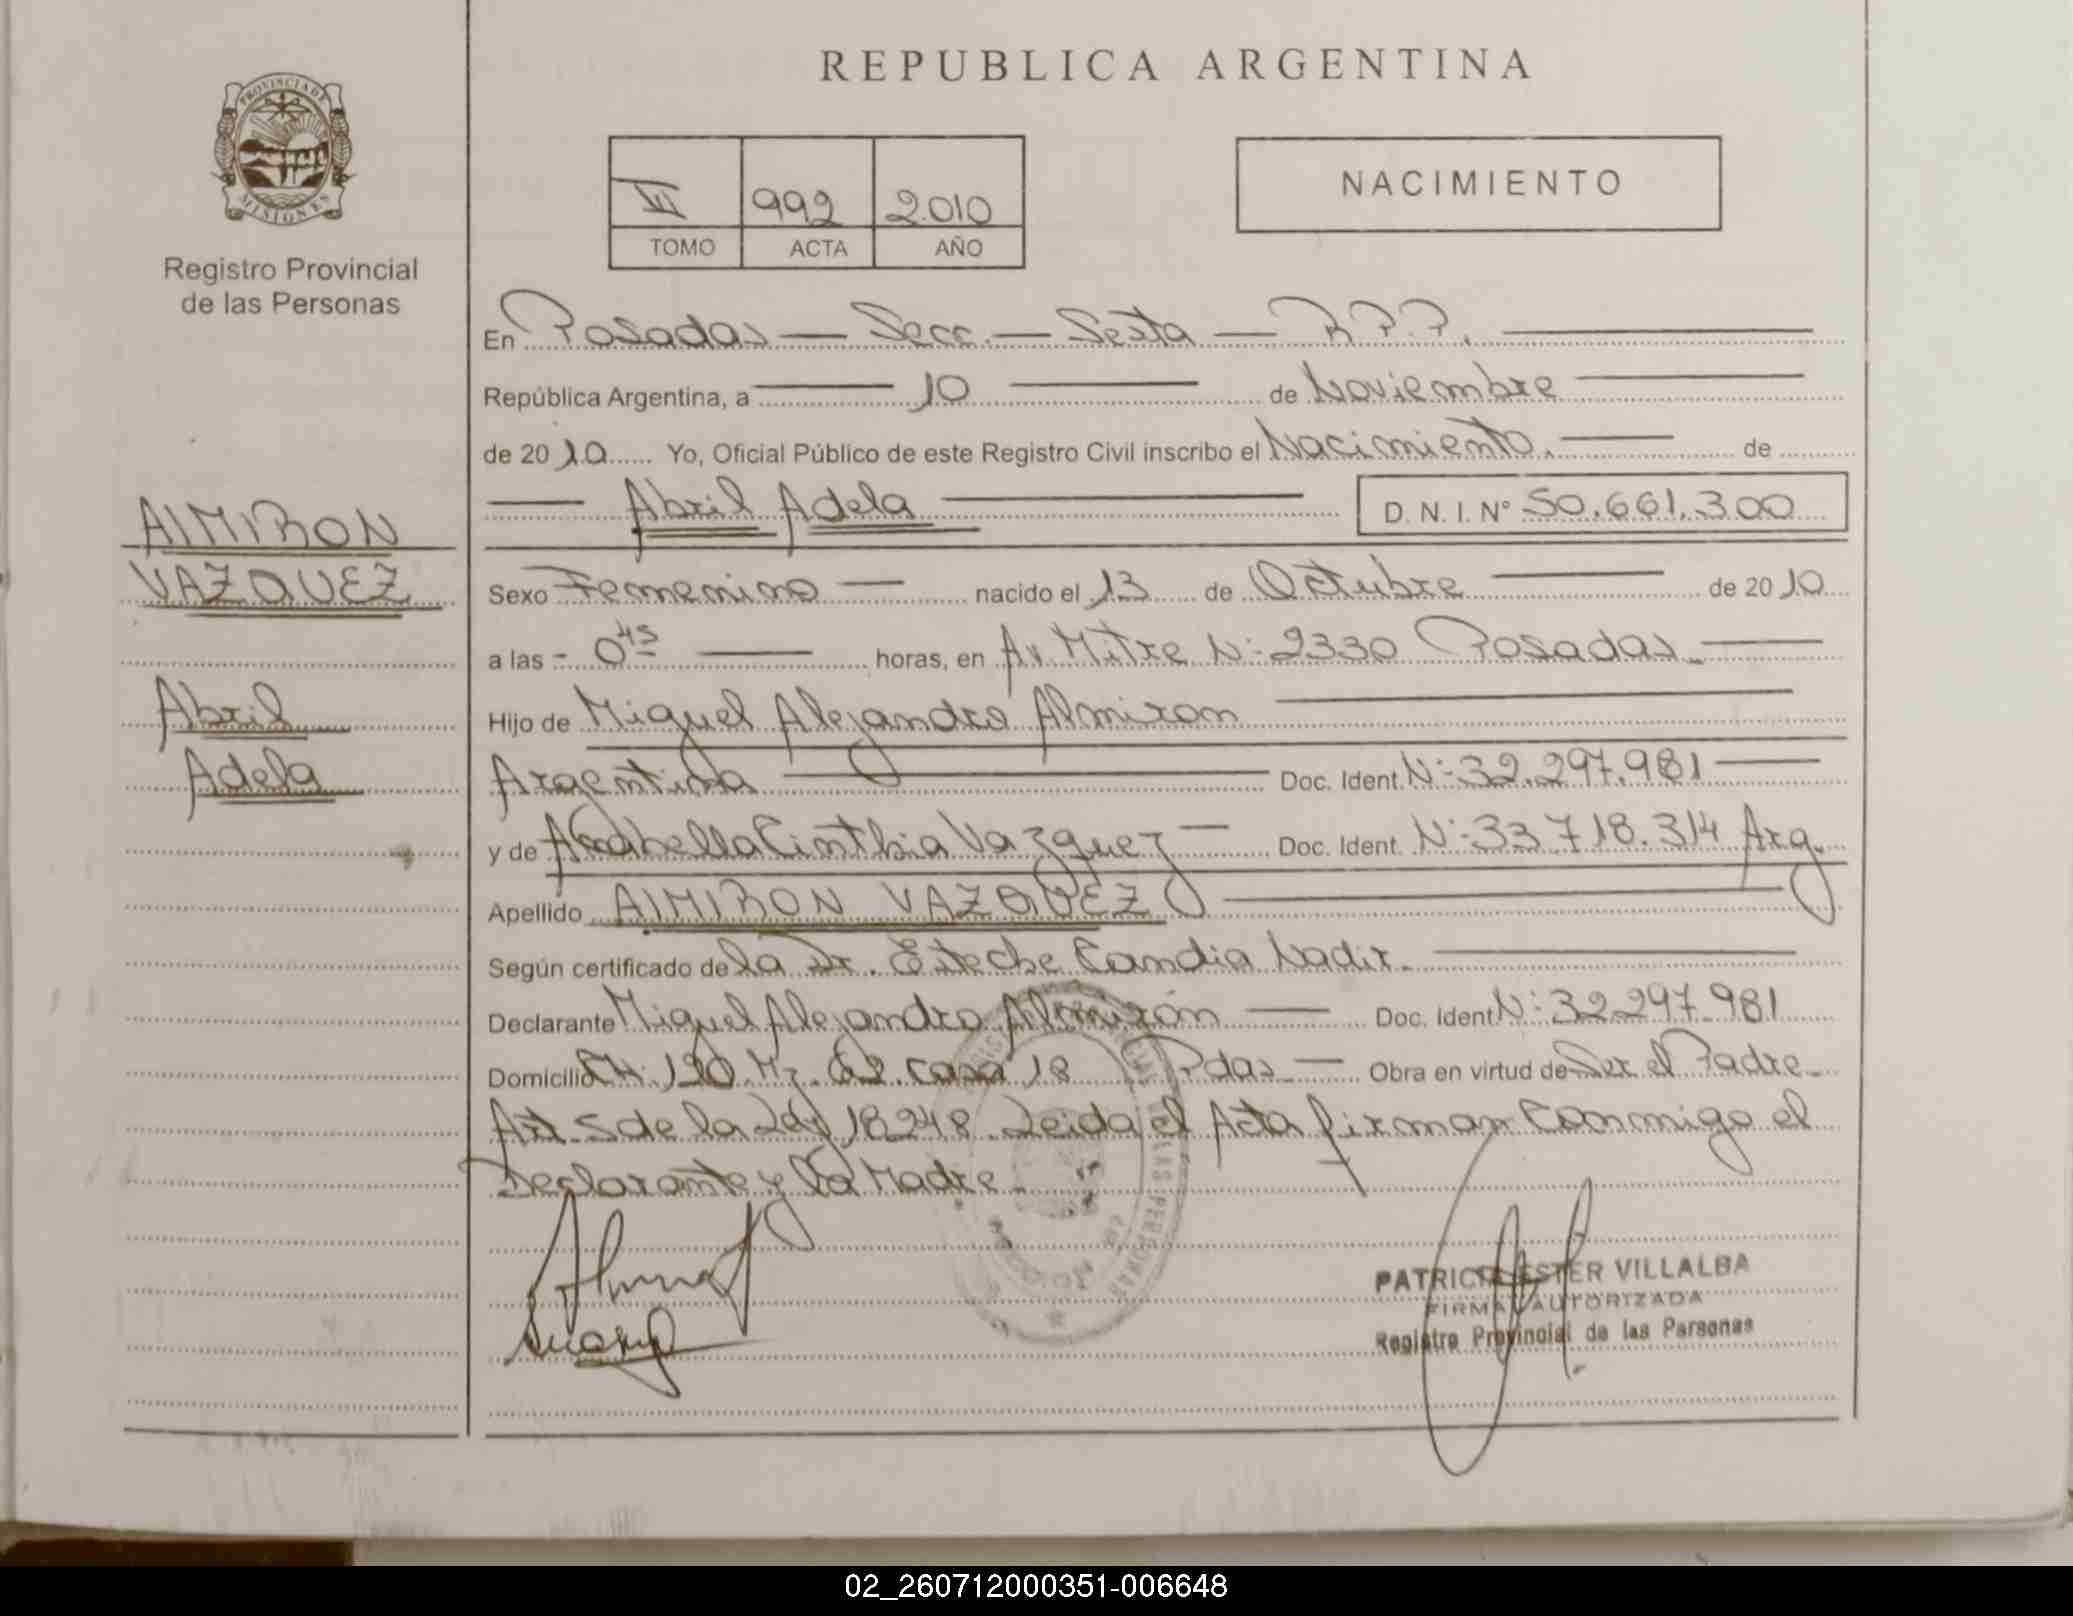 REPUBLICA ARGENTINA
PROVINCIA DE
MISIONES
Registro Provincial
de las Personas
VI 992 2010
TOMO ACTA AÑO
NACIMIENTO
En Posadas — Secc. — Sexta — R.P.P.
República Argentina, a 10 de Noviembre
de 2010 Yo, Oficial Público de este Registro Civil inscribo el Nacimiento. de
Abril Adela D. N. I. N° 50.661.300
AlMIRON
VAZQUEZ
Abril
Adela
Sexo Femenino nacido el 13 de Octubre de 2010
a las - 0 45 horas, en Av Mitre N: 2330 Posadas.
Hijo de Miguel Alejandro Almiron
Argentina Doc. Ident. N: 32.297.981
y de Cinthia Vazquez Doc. Ident. N: 33.718.314 Arg.
Apellido AlMIRON VAZQUEZ
Según certificado de la Dr. Esteche Candia Nadir.
Declarante Miguel Alejandro Almirón Doc. Ident N: 32.297.981
Domicilio CH: 190 Mz. 62 casa 18 Pdas. Obra en virtud de Ser el Padre.
Art 5 de la Ley 18248. Leida el Acta firman Conmigo el
Declarante y la Madre.
PATRICIA ESTER VILLALBA
FIRMA AUTORIZADA
Registro Provincial de las Personas
02_260712000351-006648